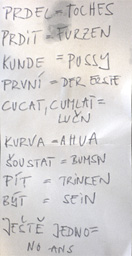 PRDEL = TOCHES
PRDIT = FURZEN
KUNDE = PUSSY
PRVNÍ = DER ERSTE
CUCAT, CUMLAT =
KURVA = AHUA
ŠOUSTAT = BUMSN
PÍT = TRINKEN
BÝT = SEIN
JEŠTĚ JEDNO =
NO ANS